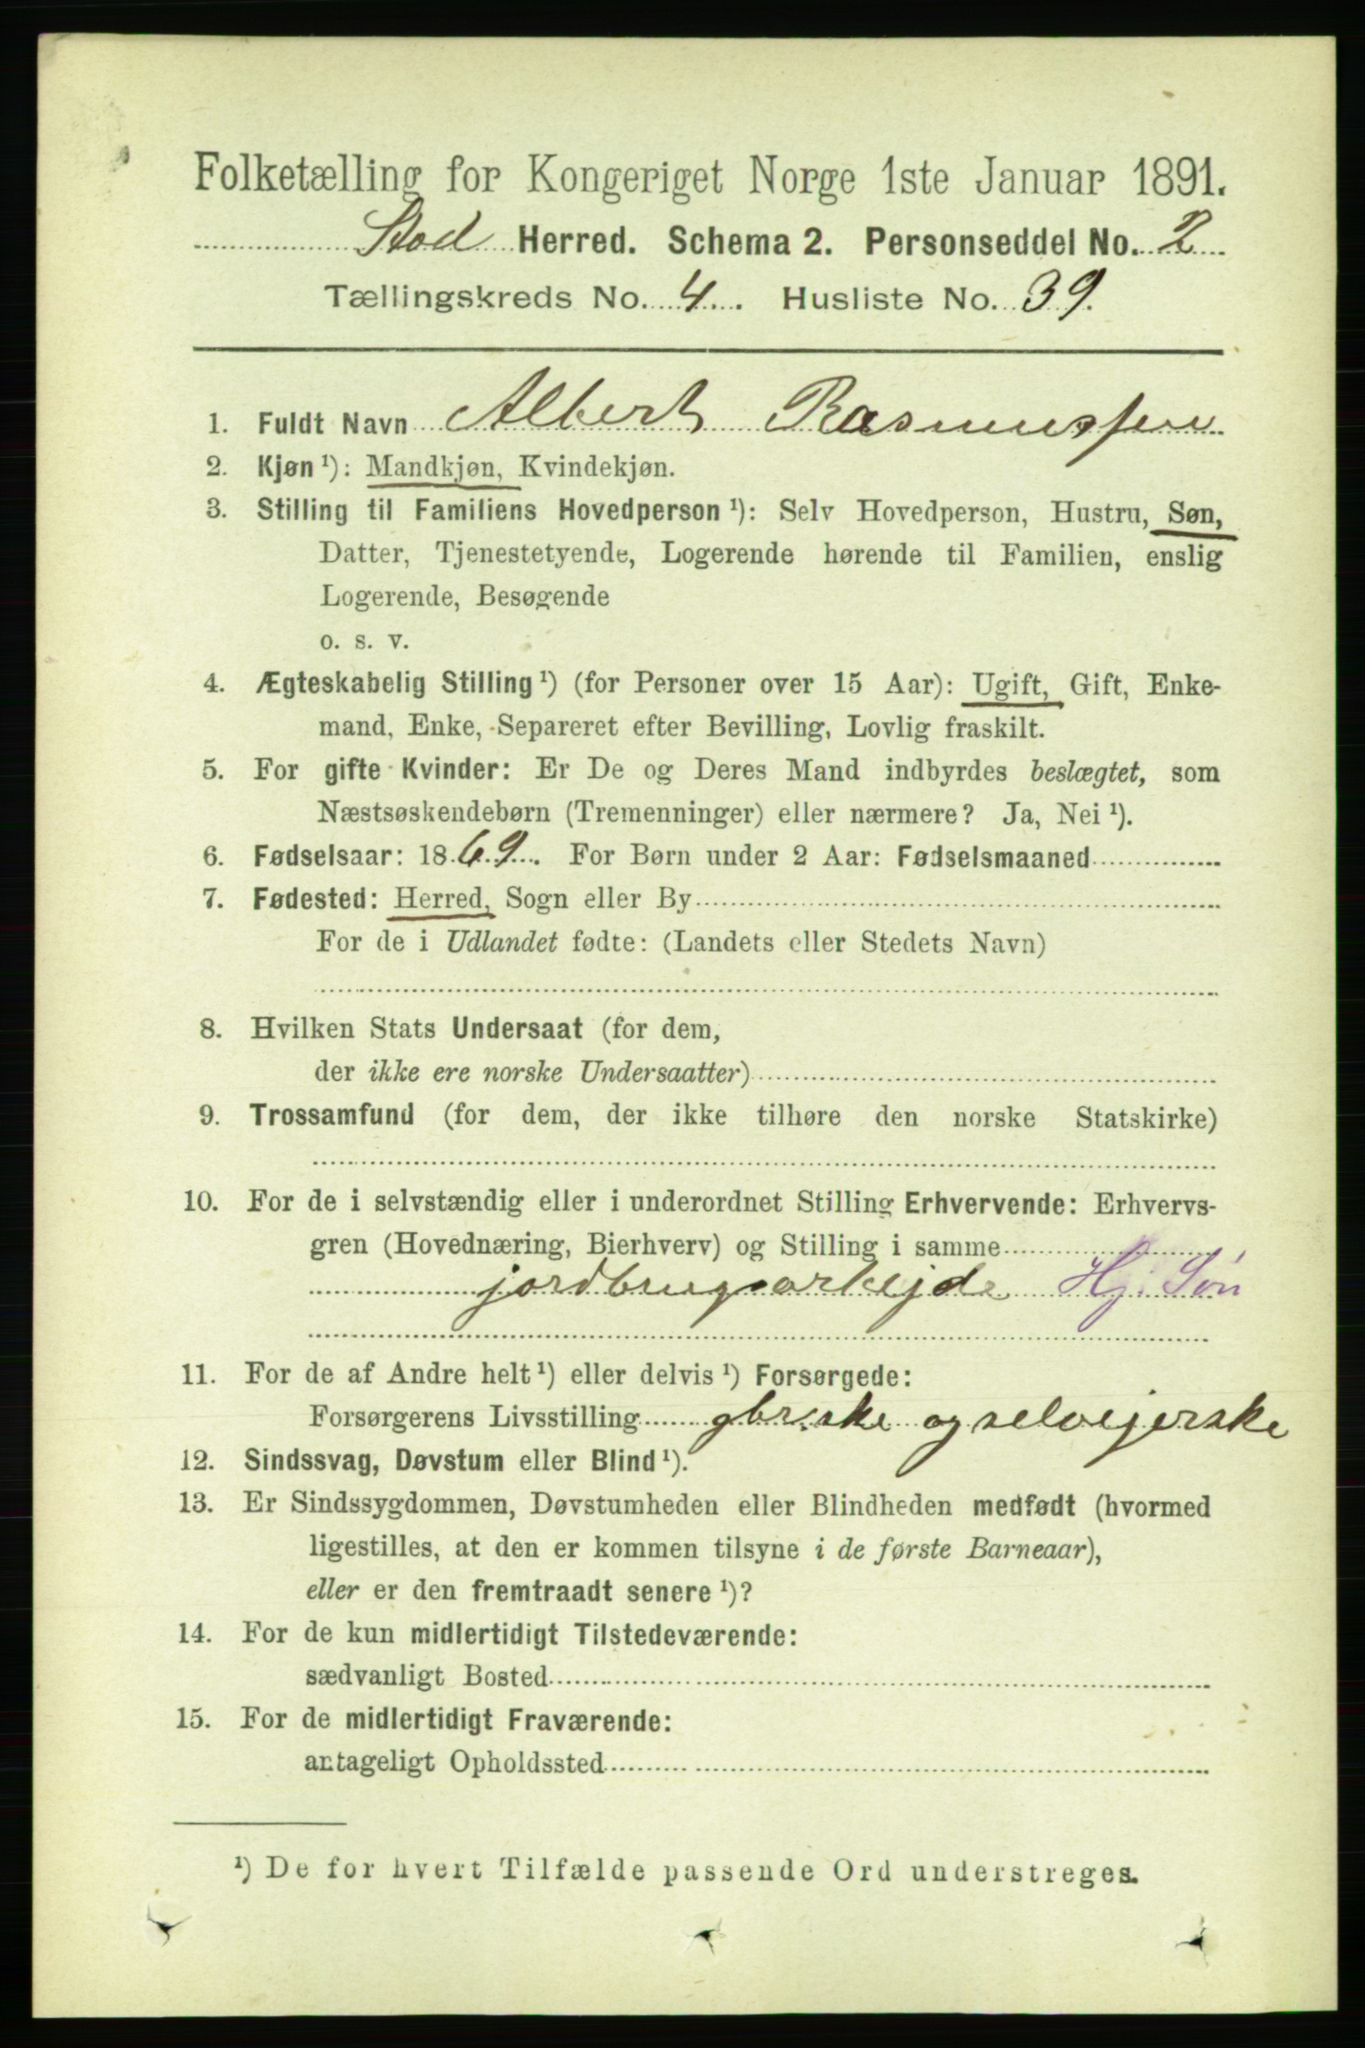 Folketælling for Kongeriget Norge 1ste Januar 1891.
Stod Herred. Schema 2. Personseddel No. 2
Tællingskreds No. 4. Husliste No. 39.
1. Fuldt Navn Albert Rasmussen
2. Kjøn ¹): Mandkjøn, Kvindekjøn.
3. Stilling til Familiens Hovedperson ¹): Selv Hovedperson, Hustru, Søn,
Datter, Tjenestetyende, Logerende hørende til Familien, enslig
Logerende, Besøgende
o. s. v.
4. Ægteskabelig Stilling ¹) (for Personer over 15 Aar): Ugift, Gift, Enke-
mand, Enke, Separeret efter Bevilling, Lovlig fraskilt.
5. For gifte Kvinder: Er De og Deres Mand indbyrdes beslægtet, som
Næstsøskendebørn (Tremenninger) eller nærmere? Ja, Nei ¹).
6. Fødselsaar: 1869. For Børn under 2 Aar: Fødselsmaaned
7. Fødested: Herred, Sogn eller By
For de i Udlandet fødte: (Landets eller Stedets Navn)
8. Hvilken Stats Undersaat (for dem,
der ikke ere norske Undersaatter)
9. Trossamfund (for dem, der ikke tilhøre den norske Statskirke)
10. For de i selvstændig eller i underordnet Stilling Erhvervende: Erhvervs-
gren (Hovednæring, Bierhverv) og Stilling i samme
jordbrugsarbejde Hj. Søn
11. For de af Andre helt ¹) eller delvis ¹) Forsørgede:
Forsørgerens Livsstilling gbr.ske og selvejerske
12. Sindssvag, Døvstum eller Blind ¹).
13. Er Sindssygdommen, Døvstumheden eller Blindheden medfødt (hvormed
ligestilles, at den er kommen tilsyne i de første Barneaar),
eller er den fremtraadt senere ¹)?
14. For de kun midlertidigt Tilstedeværende:
sædvanligt Bosted
15. For de midlertidigt Fraværende:
antageligt Opholdssted
¹) De for hvert Tilfælde passende Ord understreges.